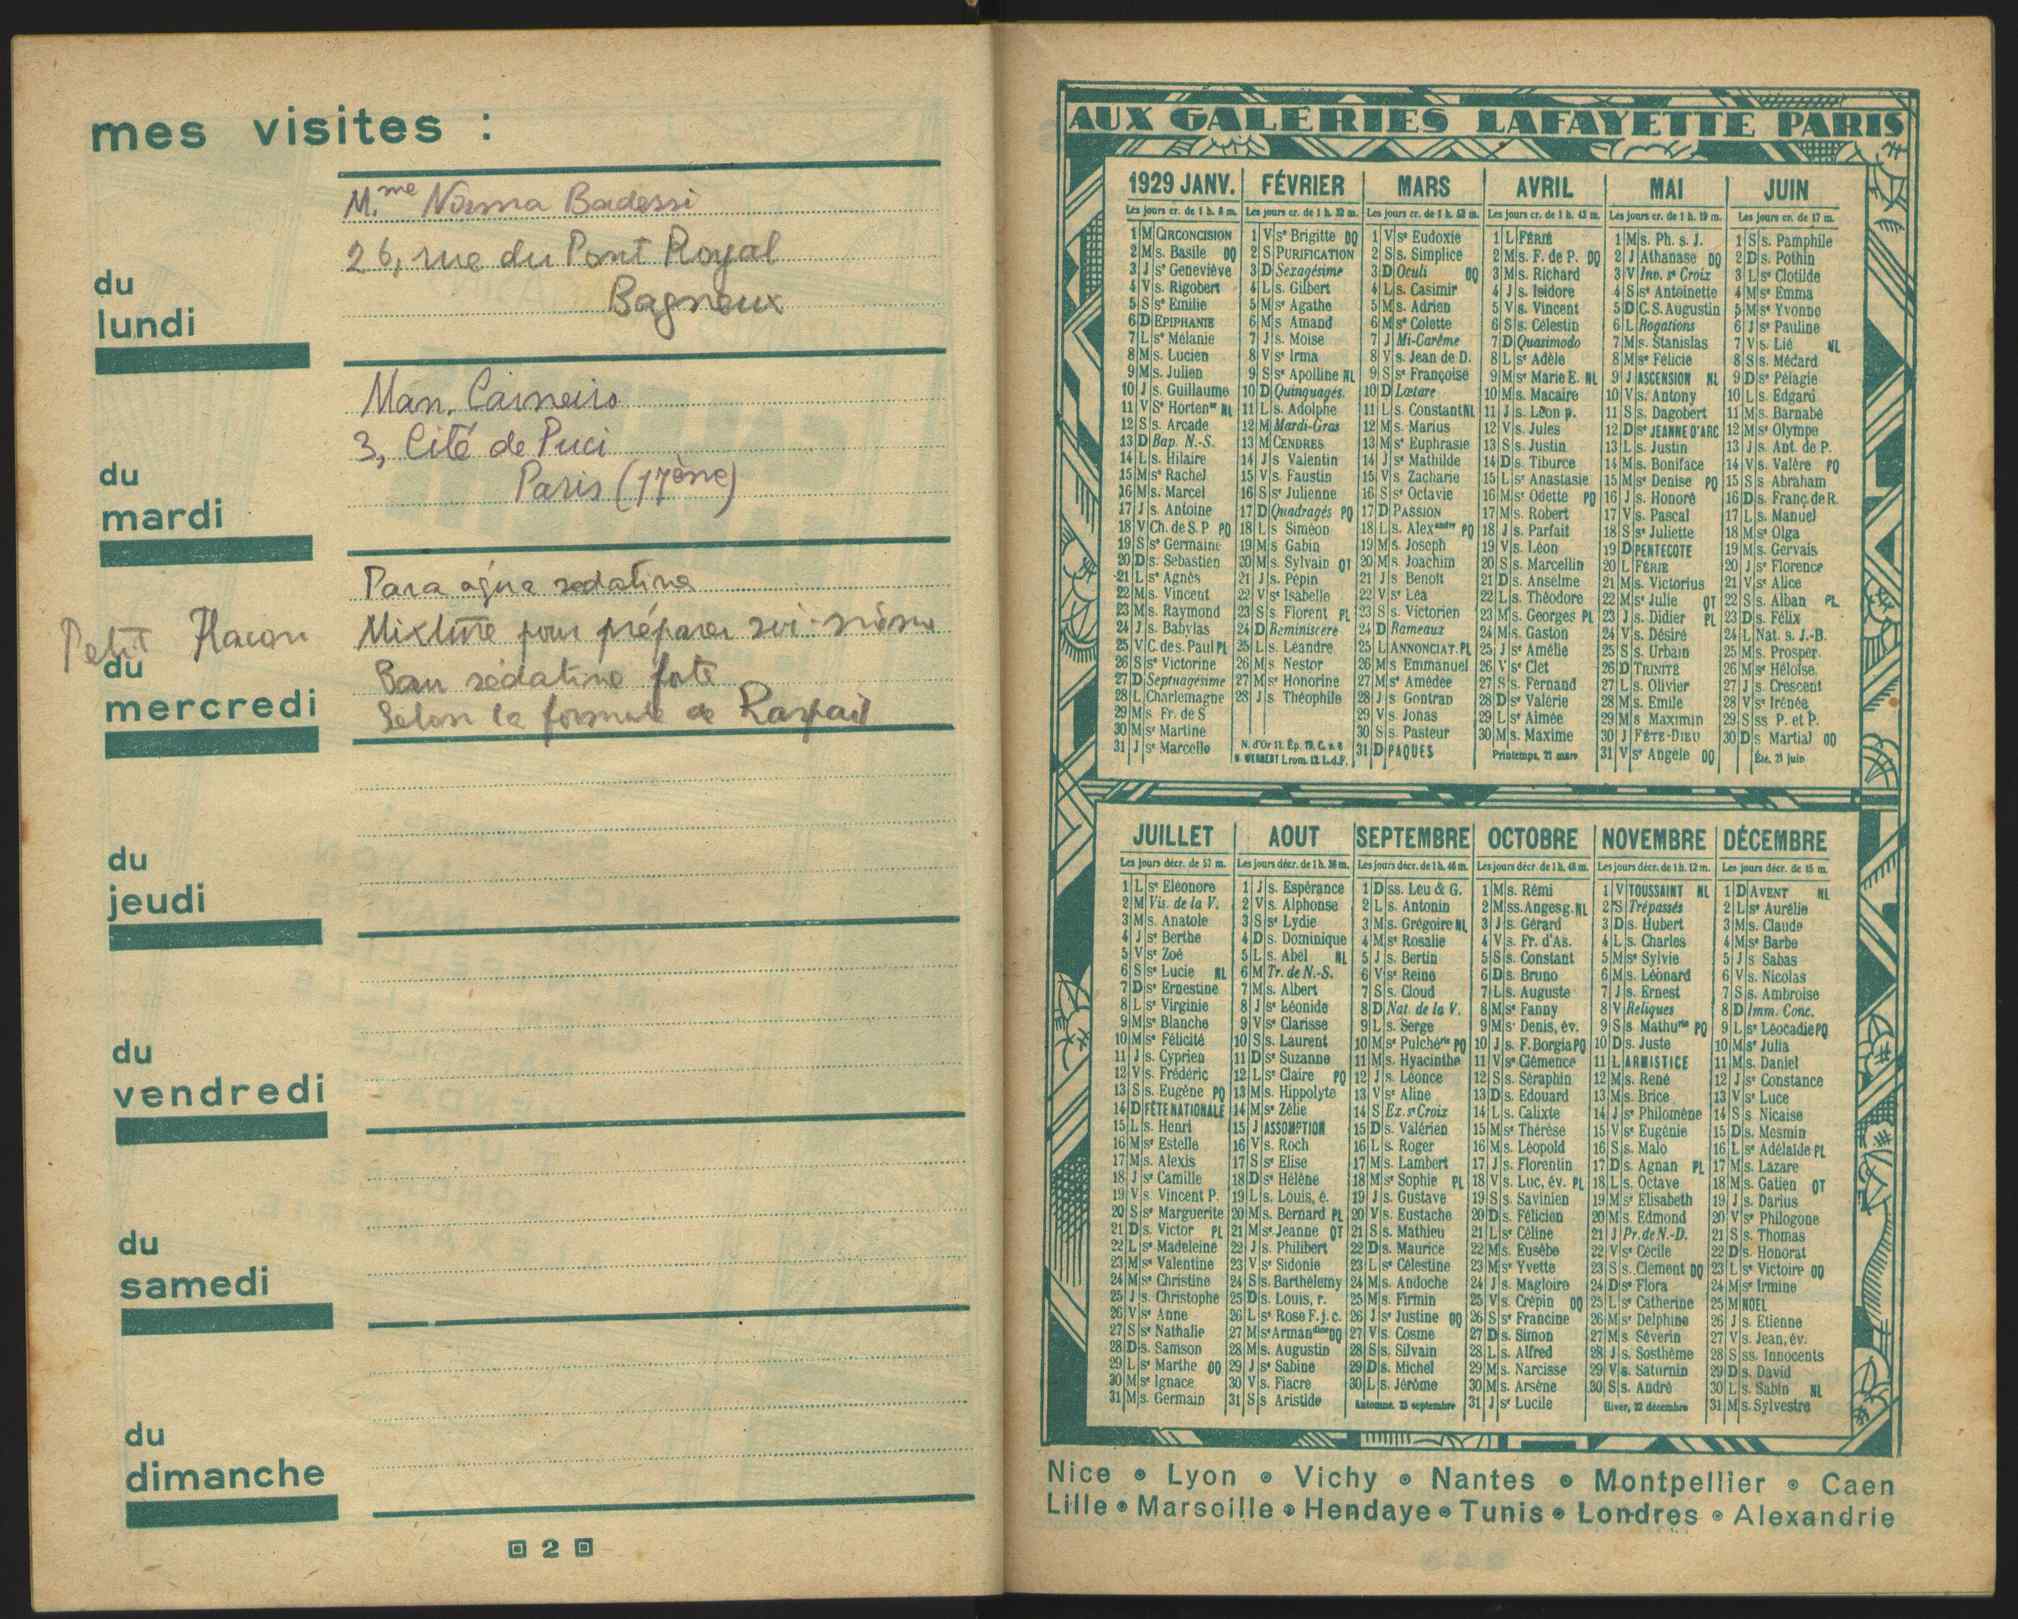 mes visites :
M.me Norma Badessi
26, rue du Pont Royal
Bagneux
du
lundi
Man. Carneiro
3, Cité de Puci
Paris (17ème)
du
mardi
Para agua sedativa
Petit Flacon Mixture pour préparer soi-même
Eau sédative forte
Selon la formule de Raspail
du
mercredi
du
jeudi
du
vendredi
du
samedi
du
dimanche
2
AUX GALERIES LAFAYETTE PARIS
1929 JANV.
Les jours cr. de 1 h. 8 m.
1 M CIRCONCISION
2 M s. Basile DQ
3 J se Geneviève
4 V s. Rigobert
5 S se Emilie
6 D EPIPHANIE
7 L se Mélanie
8 M s. Lucien
9 M s. Julien
10 J s. Guillaume
11 V Se Hortense NL
12 S s. Arcade
13 D Bap. N.-S.
14 L s. Hilaire
15 M se Rachel
16 M s. Marcel
17 J s. Antoine
18 V Ch. de S. P PQ
19 S se Germaine
20 D s. Sébastien
21 L se Agnès
22 M s. Vincent
23 M s. Raymond
24 J s. Babylas
25 V C. de s. Paul PL
26 S se Victorine
27 D Septuagésime
28 L Charlemagne
29 M s Fr. de S
30 M se Martine
31 J se Marcelle
FÉVRIER
Les jours cr. de 1 h. 32 m.
1 V se Brigitte DQ
2 S PURIFICATION
3 D Sexagésime
4 L s. Gilbert
5 M se Agathe
6 M s Amand
7 J s. Moise
8 V se Irma
9 S se Apolline NL
10 D Quinquagés.
11 L s. Adolphe
12 M Mardi-Gras
13 M CENDRES
14 J s Valentin
15 V s. Faustin
16 S se Julienne
17 D Quadragés PQ
18 L s Siméon
19 M s Gabin
20 M s. Sylvain QT
21 J s. Pépin
22 V se Isabelle
23 S s. Florent PL
24 D Reminiscere
25 L s. Léandre
26 M s. Nestor
27 M se Honorine
28 J s. Théophile
N. d'Or 11. Ép. 19. C. s. 6
Lrom. 12 L.d.F.
MARS
Les jours cr. de 1 h. 52 m.
1 V se Eudoxie
2 S s. Simplice
3 D Oculi DQ
4 L s. Casimir
5 M s. Adrien
6 M se Colette
7 J Mi-Carême
8 V s. Jean de D.
9 S se Françoise
10 D Lætare
11 L s. Constant NL
12 M s. Marius
13 M se Euphrasie
14 J se Mathilde
15 V s Zacharie
16 S se Octavie
17 D PASSION
18 L s. Alexandre PQ
19 M s. Joseph
20 M s. Joachim
21 J s Benoît
22 V se Léa
23 S s. Victorien
24 D Rameaux
25 L ANNONCIAT. PL
26 M s Emmanuel
27 M se Amédée
28 J s Gontran
29 V s. Jonas
30 S s. Pasteur
31 D PAQUES
AVRIL
Les jours cr. de 1 h. 43 m.
1 L FÉRIÉ
2 M s. F. de P. DQ
3 M s. Richard
4 J s. Isidore
5 V s. Vincent
6 S s. Célestin
7 D Quasimodo
8 L se Adèle
9 M se Marie E. NL
10 M s. Macaire
11 J s. Léon p.
12 V s. Jules
13 S s. Justin
14 D s. Tiburce
15 L se Anastasie
16 M se Odette PQ
17 M s. Robert
18 J s. Parfait
19 V s. Léon
20 S s. Marcellin
21 D s. Anselme
22 L s. Théodore
23 M s. Georges PL
24 M s. Gaston
25 J se Amélie
26 V se Clet
27 S s. Fernand
28 D se Valérie
29 L se Aimée
30 M s. Maxime
Printemps, 21 mars
MAI
Les jours cr. de 1 h. 19 m.
1 M s. Ph. s. J.
2 J Athanase DQ
3 V Inv. se Croix
4 S se Antoinette
5 D C. S. Augustin
6 L Rogations
7 M s. Stanislas
8 M se Félicie
9 J ASCENSION NL
10 V s. Antony
11 S s. Dagobert
12 D se JEANNE D'ARC
13 L s. Justin
14 M s. Boniface
15 M se Denise PQ
16 J s. Honoré
17 V s. Pascal
18 S se Juliette
19 D PENTECOTE
20 L FÉRIE
21 M s. Victorius
22 M se Julie QT
23 J s. Didier PL
24 V s. Désiré
25 S s. Urbain
26 D TRINITÉ
27 L s. Olivier
28 M s. Emile
29 M s Maximin
30 J FÊTE-DIEU
31 V se Angèle DQ
JUIN
Les jours cr. de 17 m.
1 S s. Pamphile
2 D s. Pothin
3 L se Clotilde
4 M se Emma
5 M se Yvonne
6 J se Pauline
7 V s. Lié NL
8 S s. Médard
9 D se Pélagie
10 L s. Edgard
11 M s. Barnabé
12 M se Olympe
13 J s. Ant. de P.
14 V s. Valère PQ
15 S s Abraham
16 D s. Franç. de R.
17 L s. Manuel
18 M se Olga
19 M s. Gervais
20 J se Florence
21 V se Alice
22 S s. Alban PL
23 D s. Félix
24 L Nat. s. J.-B.
25 M s. Prosper.
26 M se Héloïse.
27 J s. Crescent
28 V se Irénée
29 S ss P. et P.
30 D s Martial DQ
Été, 21 juin
JUILLET
Les jours décr. de 57 m.
1 L se Eléonore
2 M Vis. de la V.
3 M s. Anatole
4 J se Berthe
5 V se Zoé
6 S se Lucie NL
7 D se Ernestine
8 L se Virginie
9 M se Blanche
10 M se Félicité
11 J s. Cyprien
12 V s. Frédéric
13 S s. Eugène PQ
14 D FÊTE NATIONALE
15 L s. Henri
16 M se Estelle
17 M s. Alexis
18 J se Camille
19 V s. Vincent P.
20 S se Marguerite
21 D s. Victor PL
22 L se Madeleine
23 M se Valentine
24 M se Christine
25 J s. Christophe
26 V se Anne
27 S se Nathalie
28 D s. Samson
29 L se Marthe DQ
30 M se Ignace
31 M s. Germain
AOUT
Les jours décr. de 1 h. 36 m.
1 J s. Espérance
2 V s. Alphonse
3 S se Lydie
4 D s. Dominique
5 L s. Abel NL
6 M Tr. de N.-S.
7 M s. Albert
8 J se Léonide
9 V se Clarisse
10 S s. Laurent
11 D se Suzanne
12 L se Claire PQ
13 M s. Hippolyte
14 M se Zélie
15 J ASSOMPTION
16 V s. Roch
17 S se Elise
18 D se Hélène
19 L s. Louis, é.
20 M s. Bernard PL
21 M se Jeanne QT
22 J s. Philibert
23 V se Sidonie
24 S s. Barthélemy
25 D s. Louis, r.
26 L se Rose F. j. c.
27 M se Armandine DQ
28 M s. Augustin
29 J se Sabine
30 V s. Fiacre
31 S s Aristide
SEPTEMBRE
Les jours décr. de 1 h. 46 m.
1 D ss. Leu & G.
2 L s. Antonin
3 M s. Grégoire NL
4 M se Rosalie
5 J s. Bertin
6 V se Reine
7 S s. Cloud
8 D Nat. de la V.
9 L s. Serge
10 M se Pulchérie PQ
11 M s. Hyacinthe
12 J s. Léonce
13 V se Aline
14 S Ex. se Croix
15 D s. Valérien
16 L s. Roger
17 M s. Lambert
18 M se Sophie PL
19 J s. Gustave
20 V s. Eustache
21 S s. Mathieu
22 D s. Maurice
23 L se Célestine
24 M s. Andoche
25 M s. Firmin
26 J se Justine DQ
27 V s. Cosme
28 S s. Silvain
29 D s. Michel
30 L s. Jérôme
Automne, 23 septembre
OCTOBRE
Les jours décr. de 1 h. 43 m.
1 M s. Rémi
2 M ss. Angesg. NL
3 J s. Gérard
4 V s. Fr. d'As.
5 S s. Constant
6 D s. Bruno
7 L s. Auguste
8 M se Fanny
9 M se Denis, év.
10 J s. F. Borgia PQ
11 V se Clémence
12 S s. Séraphin
13 D s. Edouard
14 L s. Calixte
15 M se Thérèse
16 M s. Léopold
17 J s. Florentin
18 V s. Luc, év. PL
19 S s. Savinien
20 D s. Félicien
21 L se Céline
22 M s. Eusèbe
23 M se Yvette
24 J s. Magloire
25 V s. Crépin DQ
26 S se Francine
27 D s. Simon
28 L s. Alfred
29 M s. Narcisse
30 M s. Arsène
31 J se Lucile
NOVEMBRE
Les jours décr. de 1 h. 12 m.
1 V TOUSSAINT NL
2 S Trépassés
3 D s. Hubert
4 L s. Charles
5 M se Sylvie
6 M s. Léonard
7 J s. Ernest
8 V Reliques
9 S s. Mathurin PQ
10 D s. Juste
11 L ARMISTICE
12 M s. René
13 M s. Brice
14 J se Philomène
15 V se Eugénie
16 S s. Malo
17 D s. Agnan PL
18 L s. Octave
19 M se Elisabeth
20 M s. Edmond
21 J Pr. de N.-D.
22 V se Cécile
23 S s. Clément DQ
24 D se Flora
25 L se Catherine
26 M se Delphine
27 M s Séverin
28 J s. Sosthème
29 V s. Saturnin
30 S s. André
Hiver, 22 décembre
DÉCEMBRE
Les jours décr. de 15 m.
1 D AVENT NL
2 L se Aurélie
3 M s. Claude
4 M se Barbe
5 J s Sabas
6 V s. Nicolas
7 S s. Ambroise
8 D Imm. Conc.
9 L se Léocadie PQ
10 M se Julia
11 M s. Daniel
12 J se Constance
13 V se Luce
14 S s. Nicaise
15 D s. Mesmin
16 L se Adélaïde PL
17 M s. Lazare
18 M s. Gatien QT
19 J s. Darius
20 V se Philogone
21 S s. Thomas
22 D s. Honorat
23 L se Victoire DQ
24 M se Irmine
25 M NOEL
26 J s. Etienne
27 V s. Jean, év.
28 S ss. Innocents
29 D s. David
30 L s. Sabin NL
31 M s. Sylvestre
Nice • Lyon • Vichy • Nantes • Montpellier • Caen
Lille • Marseille • Hendaye • Tunis • Londres • Alexandrie